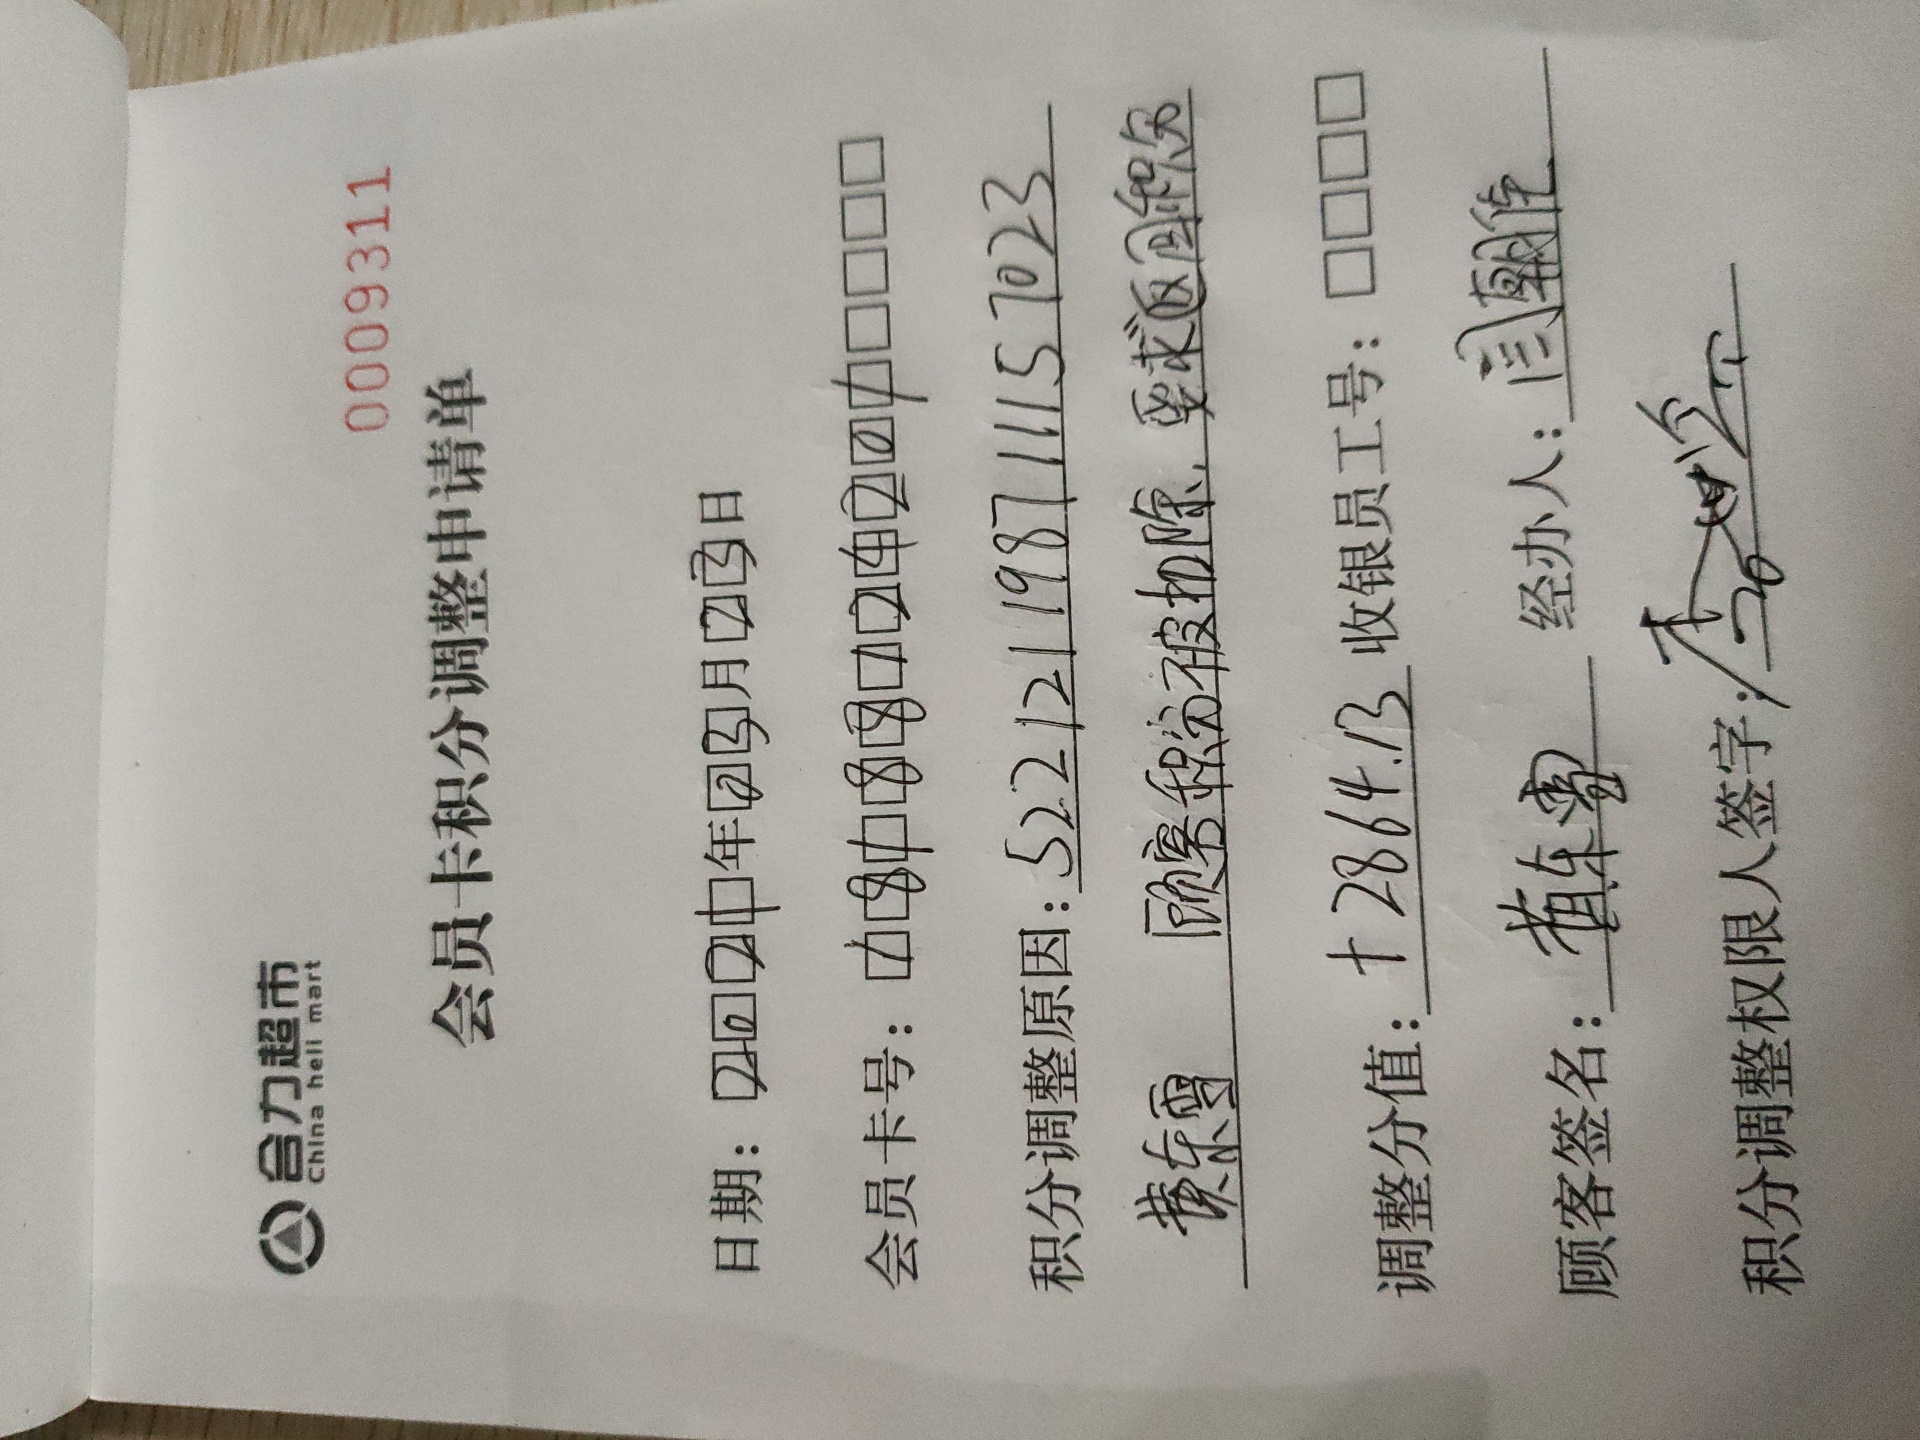 合力超市
China heli mart
0009311
会员卡积分调整申请单
日期：2021年03月23日
会员卡号：18188124201
积分调整原因：522121198711157023
黄东雪 顾客积分被扣除，要求返回积分
调整分值：+2864.13 收银员工号：□□□□
顾客签名：黄东雪 经办人：闫
积分调整权限人签字：